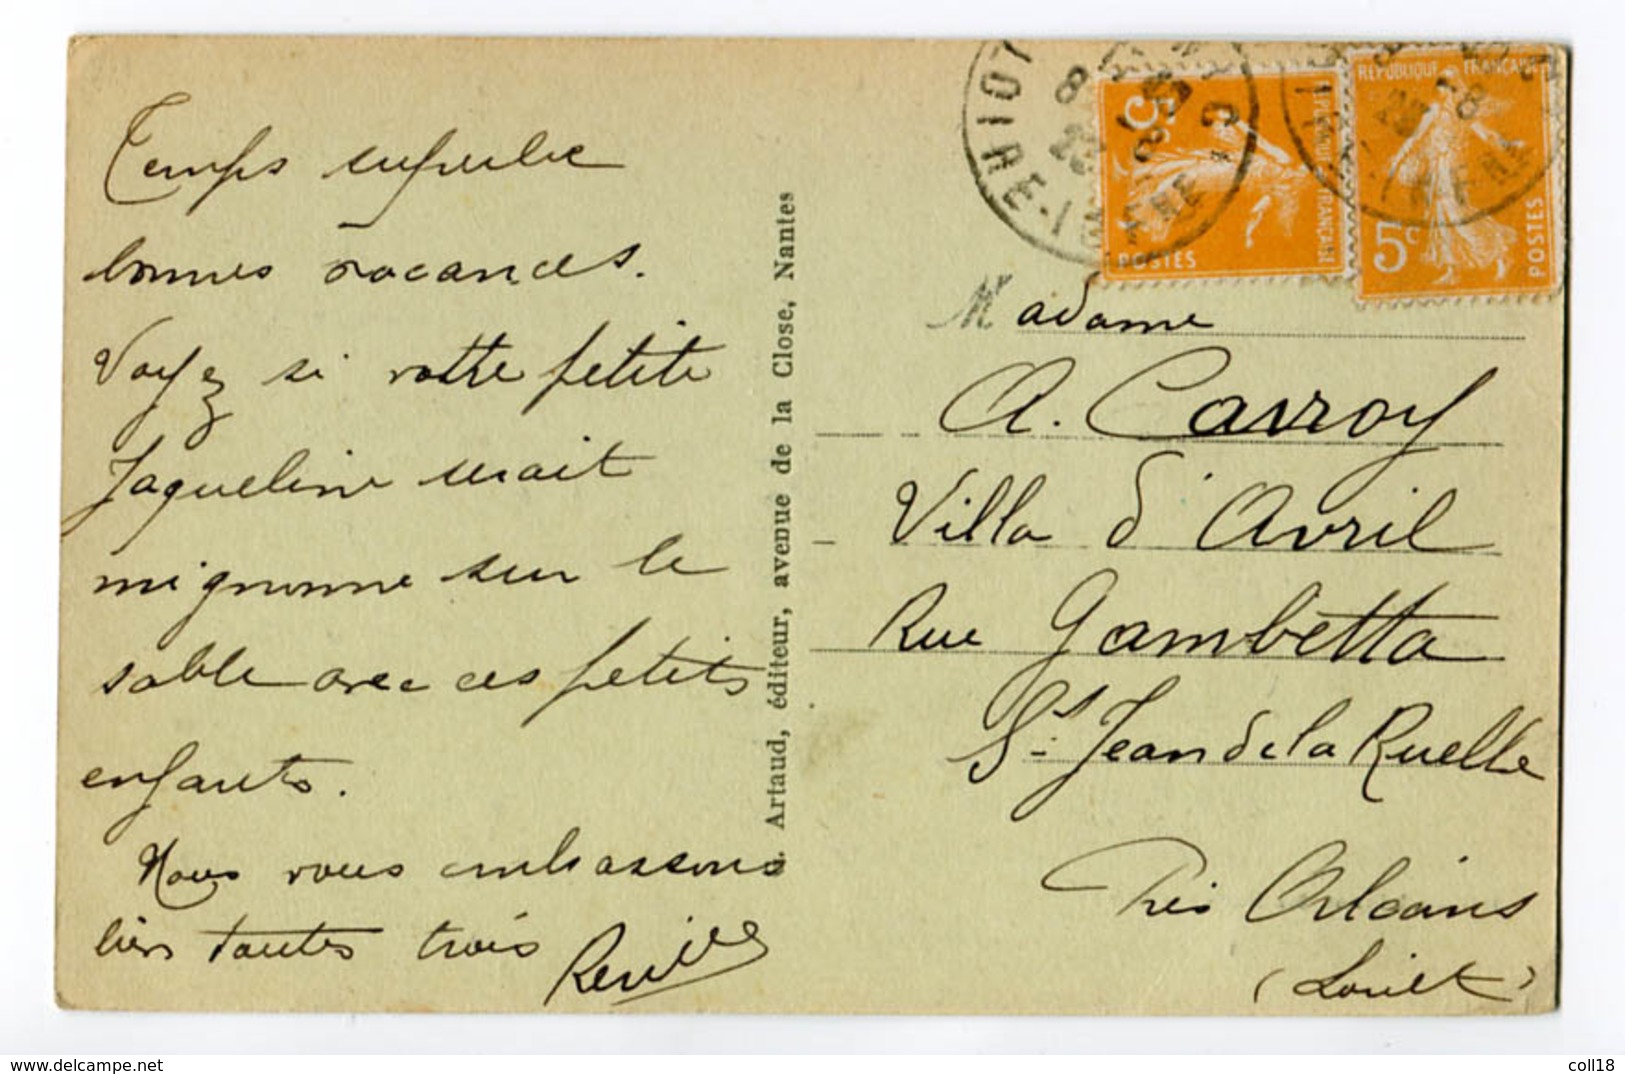 Temps superbe
bonnes vacances.
Voyez si votre petite
Jaqueline serait
mignonne sur le
sable avec ces petits
enfants.
Nous vous embrassons
bien toutes trois
Artaud, éditeur, avenue de la Close, Nantes
RÉPUBLIQUE FRANÇAISE
5c
POSTES
RÉPUBLIQUE FRANÇAISE
5c
POSTES
Madame
A. Cavroy
Villa d'Avril
Rue Gambetta
St Jean de la Ruelle
Près Orléans
(Loiret)
www.delcampe.net
coll18